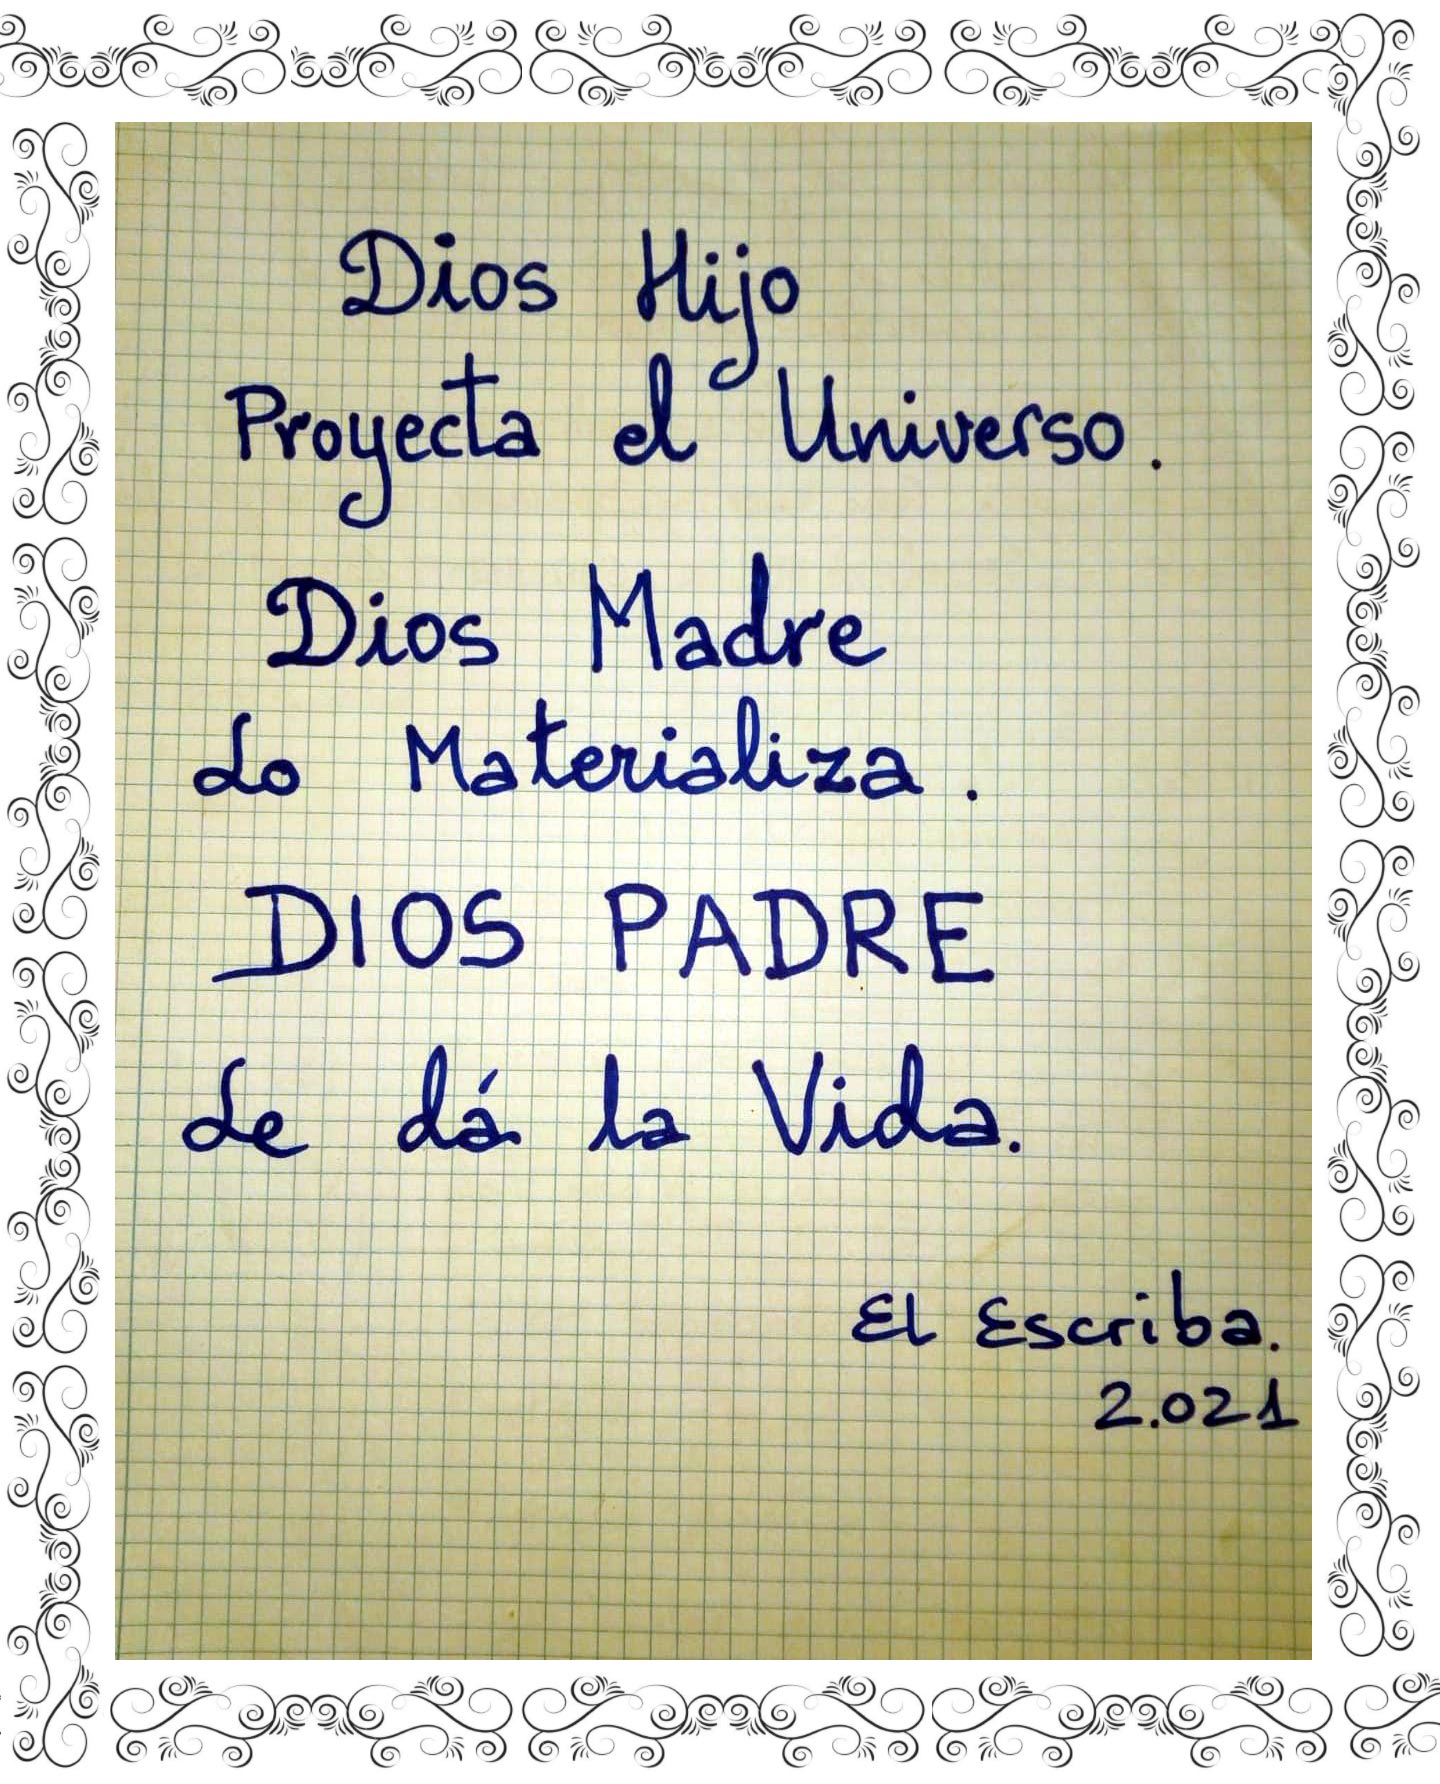 Dios Hijo
Proyecta el Universo.
Dios Madre
Lo Materializa.
DIOS PADRE
Le dá la Vida.
El Escriba.
2.021